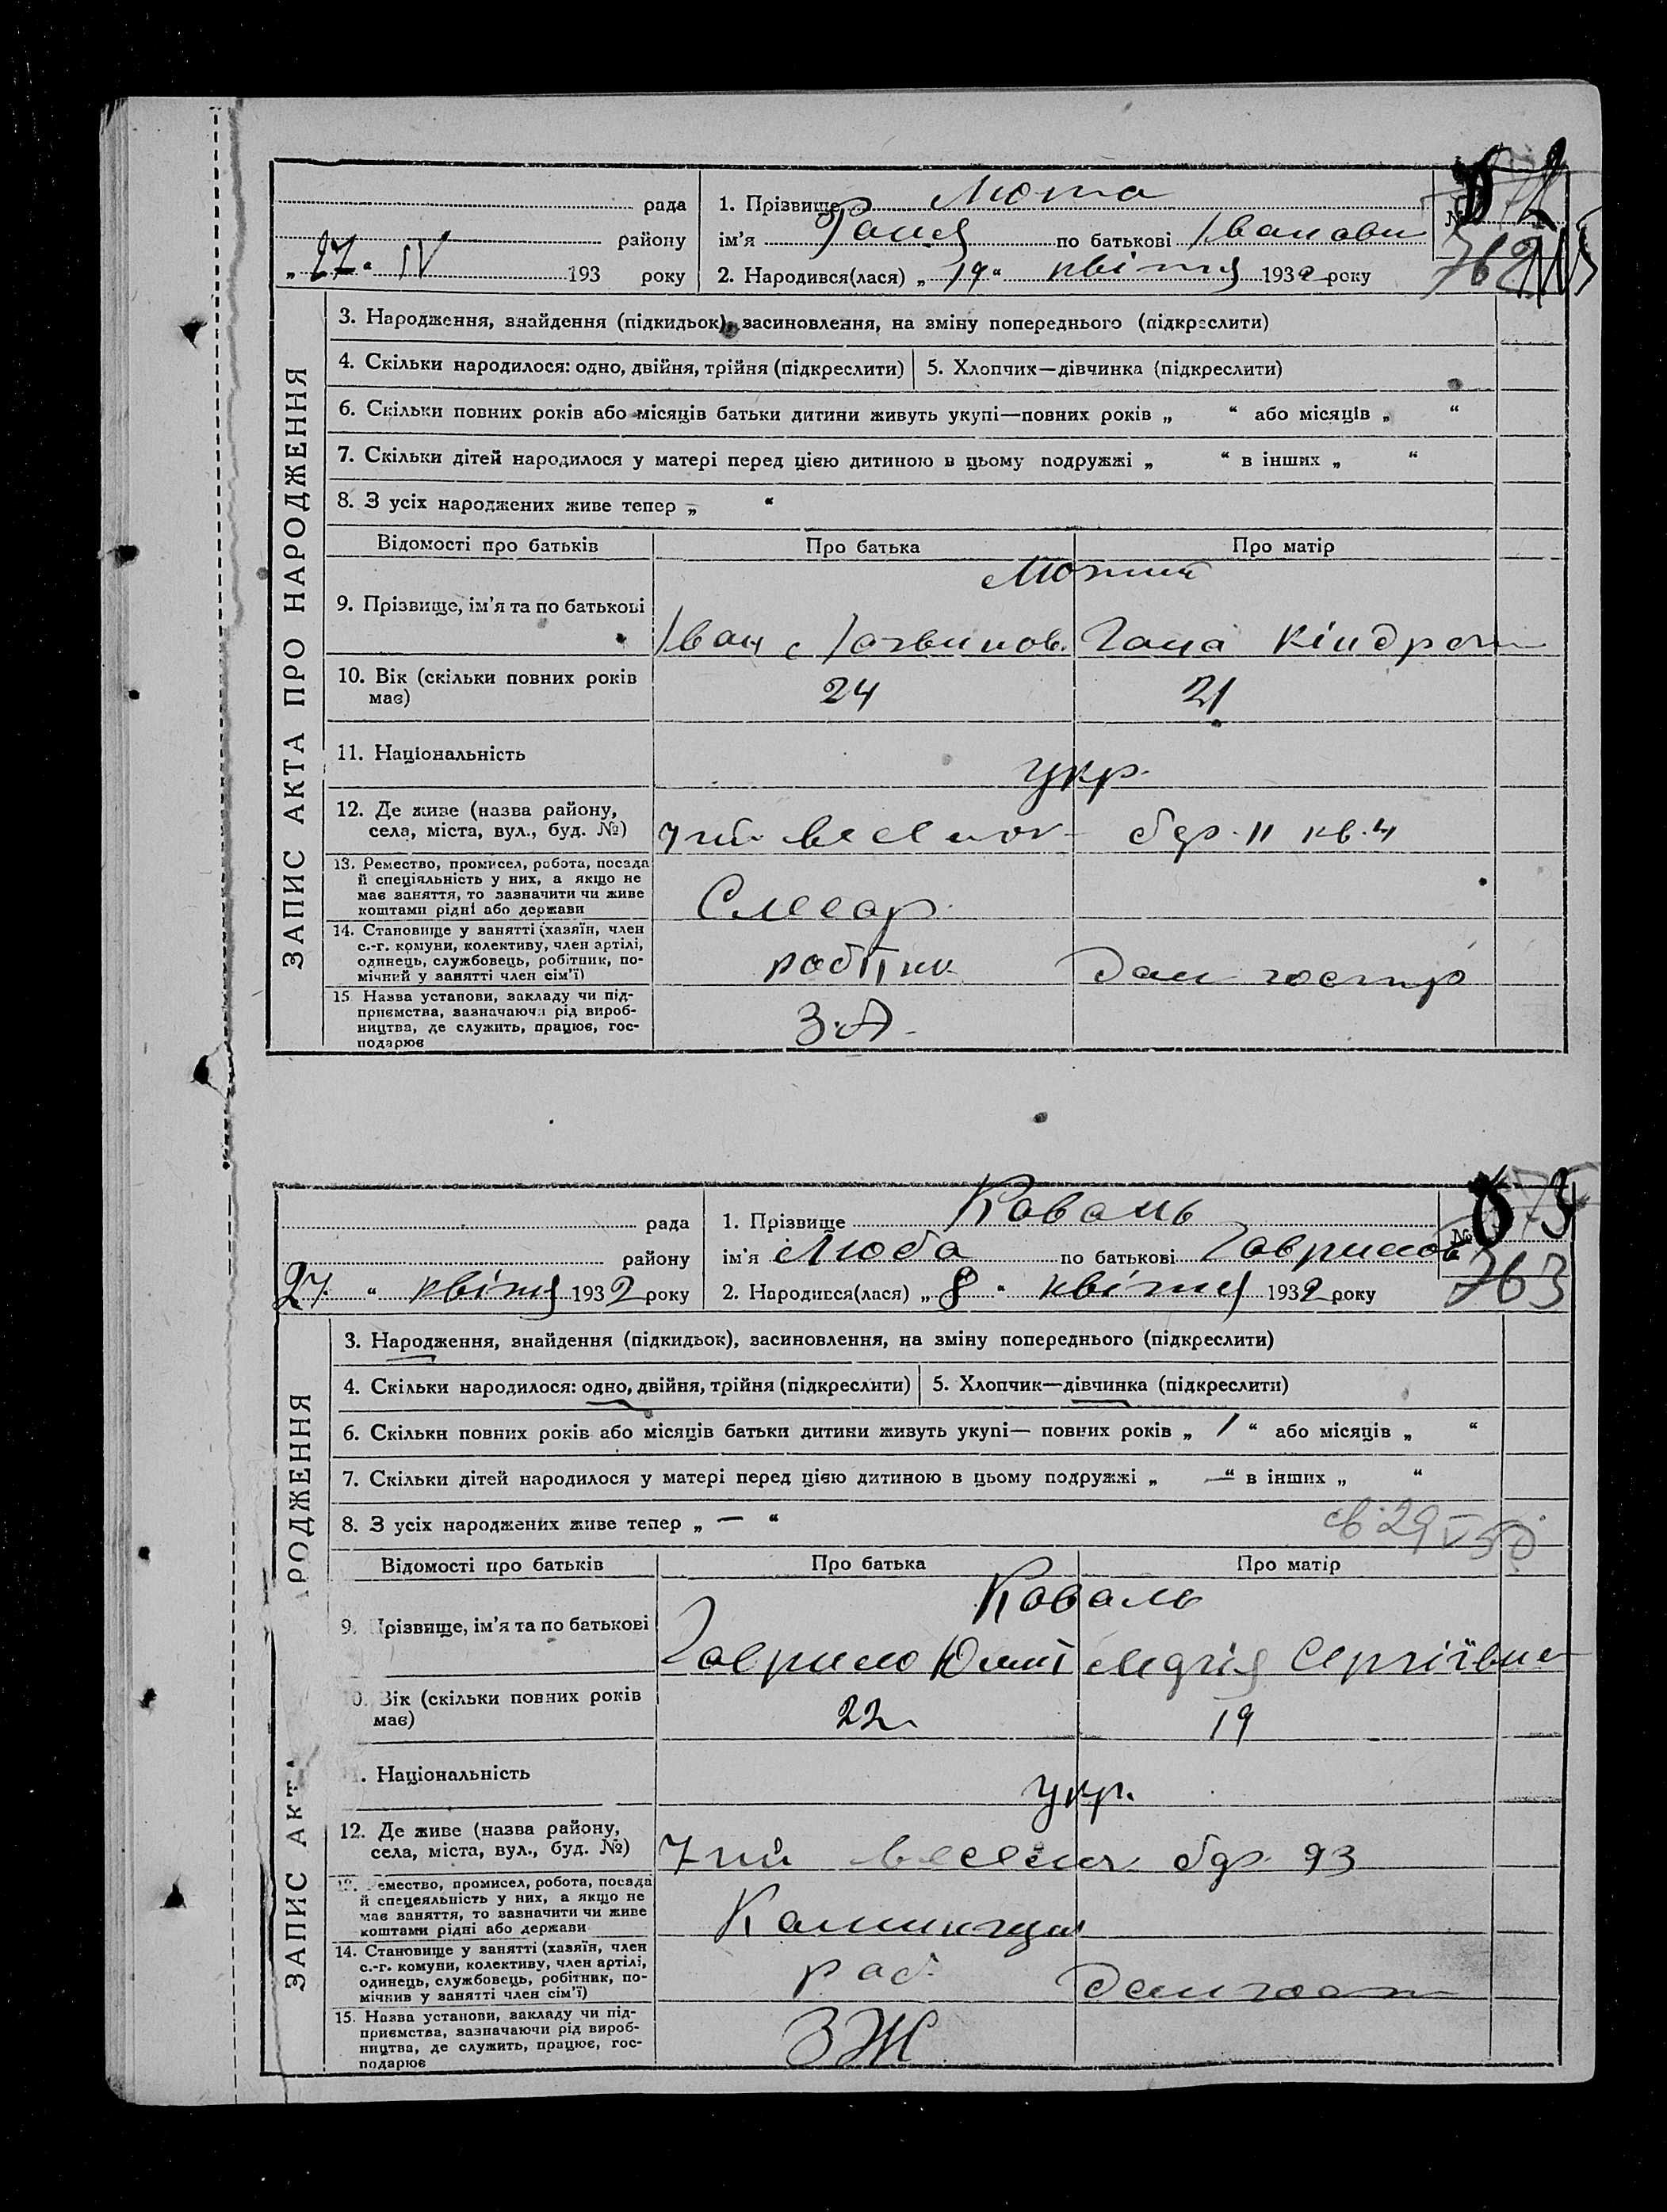 рада
району
„27“ IV 193 року
1. Прізвище Люта
ім’я Рая по батькові Іванови
2. Народився(лася) „19“ квітня 1932 року
№
762
ЗАПИС АКТА ПРО НАРОДЖЕННЯ
3. Народження, знайдення (підкидьок), засиновлення, на зміну попереднього (підкреслити)
4. Скільки народилося: одно, двійня, трійня (підкреслити) 5. Хлопчик—дівчинка (підкреслити)
6. Скільки повних років або місяців батьки дитини живуть укупі—повних років „ “ або місяців „ “
7. Скільки дітей народилося у матері перед цією дитиною в цьому подружжі „ “ в інших „ “
8. З усіх народжених живе тепер „ “
Відомості про батьків Про батька Про матір
9. Прізвище, ім’я та по батькові
Іван Гана Кіндрат
10. Вік (скільки повних років має) 24 21
11. Національність укр.
12. Де живе (назва району, села, міста, вул., буд. №) 7ий бдр. 11 кв. 4
13. Ремество, промисел, робота, посада
й спеціяльність у них, а якщо не
має заняття, то зазначити чи живе
коштами рідні або держави
Слесар
14. Становище у занятті (хазяїн, член
с.-г. комуни, колективу, член артілі,
одинець, службовець, робітник, по-
мічний у занятті член сім’ї)
робітник Дом госпр
15. Назва установи, закладу чи під-
приємства, зазначаючи рід вироб-
ництва, де служить, працює, гос-
подарює
рада
району
27 “ квітня 1932 року
1. Прізвище Коваль
ім’я Люба по батькові Гаврилов
2. Народився(лася) „8“ квітня 1932 року
№
763
ЗАПИС АКТ РОДЖЕННЯ
3. Народження, знайдення (підкидьок), засиновлення, на зміну попереднього (підкреслити)
4. Скільки народилося: одно, двійня, трійня (підкреслити) 5. Хлопчик—дівчинка (підкреслити)
6. Скільки повних років або місяців батьки дитини живуть укупі— повних років „ 1 “ або місяців „ “
7. Скільки дітей народилося у матері перед цією дитиною в цьому подружжі „ —“ в інших „ “
8. З усіх народжених живе тепер „ — “
Відомості про батьків Про батька Про матір
Коваль
9. Прізвище, ім’я та по батькові Гаврило Марія Сергіївна
10. Вік (скільки повних років має) 22 19
. Національність укр.
12. Де живе (назва району, села, міста, вул., буд. №) 7ий бдр. 93
13. Ремество, промисел, робота, посада
й спецеяльність у них, а якщо не
має заняття, то зазначити чи живе
коштами рідні або держави
14. Становище у занятті (хазяїн, член
с.-г. комуни, колективу, член артілі,
одинець, службовець, робітник, по-
мічнив у занятті член сім’ї)
роб. Дом госп
15. Назва установи, закладу чи під-
приємства, зазначаючи рід вироб-
ництва, де служить, працює, гос-
подарює
ЗЖ